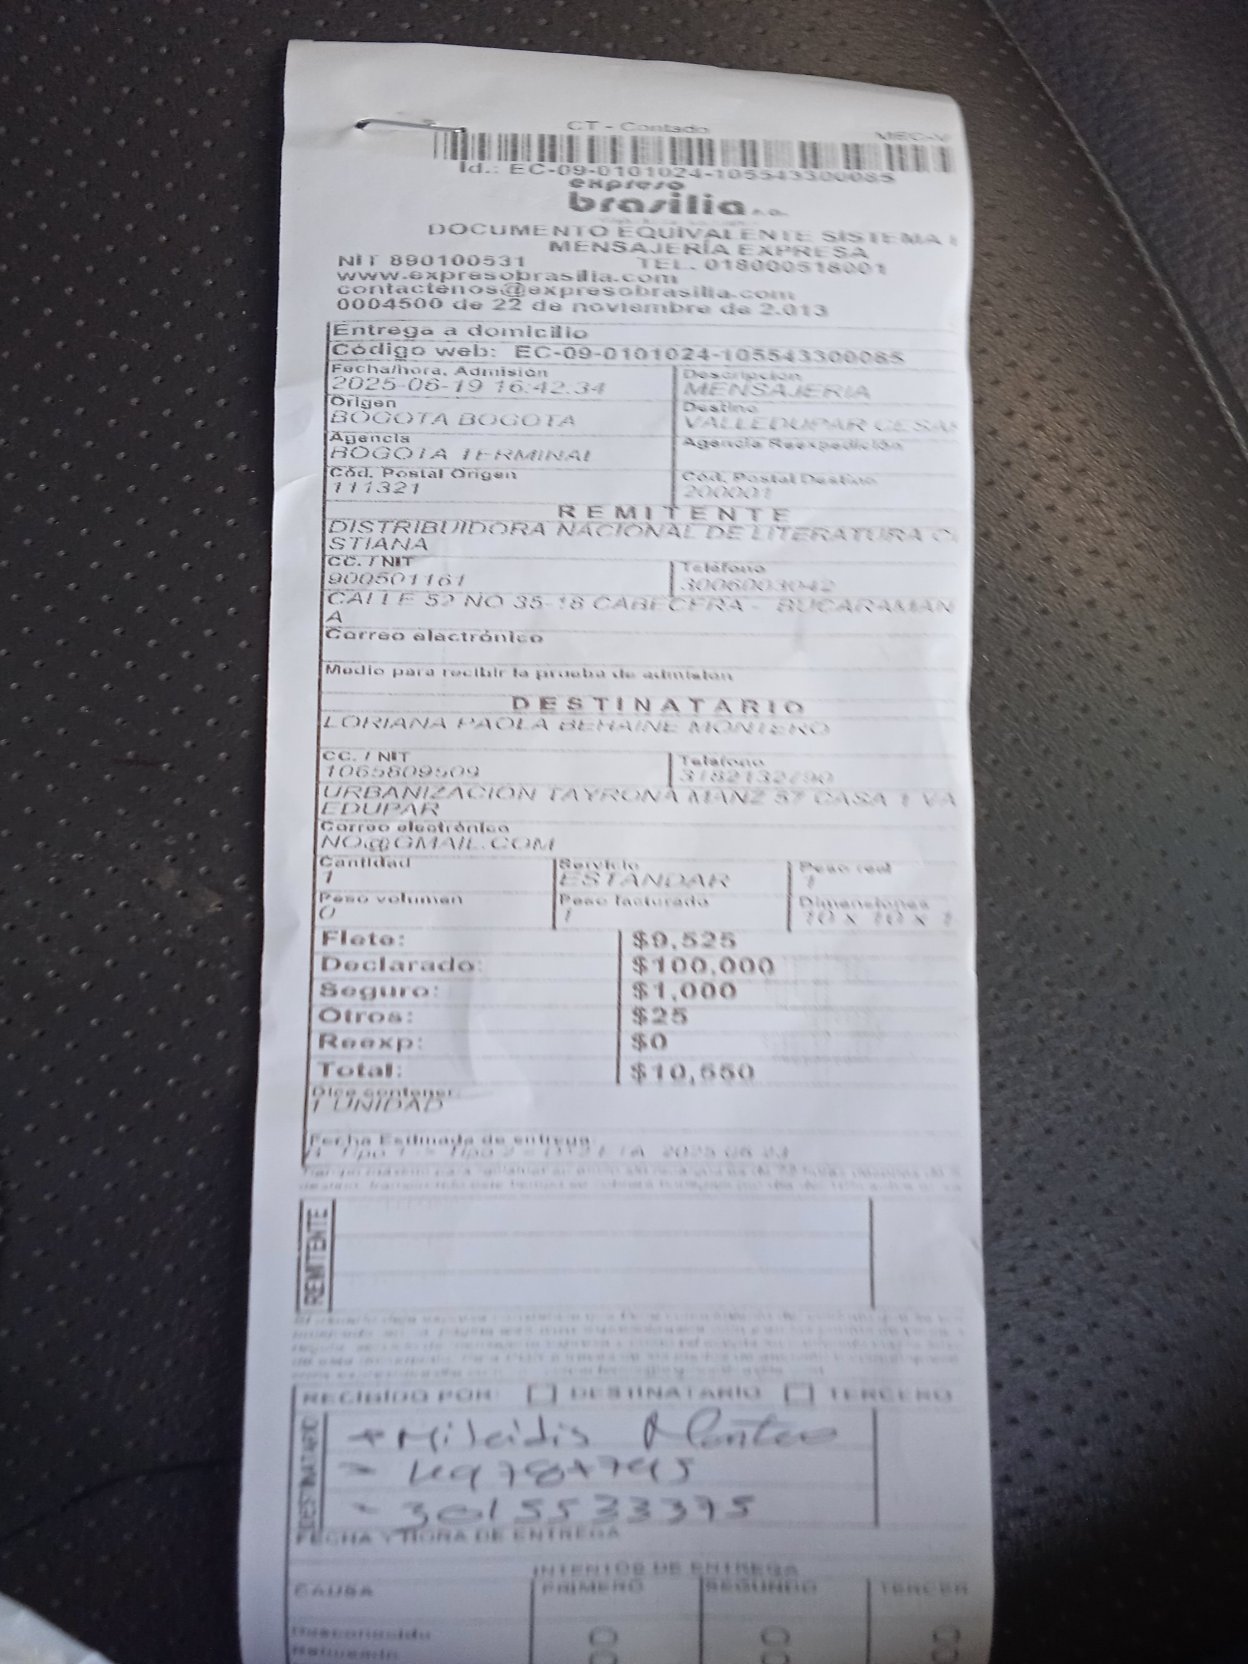 CT - Contado MEC-V
Id.: EC-09-0101024-105543300085
expreso
brasilia s.a.
DOCUMENTO EQUIVALENTE SISTEMA
MENSAJERÍA EXPRESA
NIT 890100531 TEL. 018000518001
www.expresobrasilia.com
contactenos@expresobrasilia.com
0004500 de 22 de noviembre de 2.013
Entrega a domicilio
Código web: EC-09-0101024-105543300085
Fecha/hora. Admisión Descripción
2025-06-19 16:42.34 MENSAJERIA
Origen Destino
BOGOTA BOGOTA VALLEDUPAR CESAR
Agencia Agencia Reexpedición
BOGOTA TERMINAL
Cód. Postal Origen Cód. Postal Destino
111321 200001
REMITENTE
DISTRIBUIDORA NACIONAL DE LITERATURA
STIANA
CC. / NIT Teléfono
900501161 3006003042
CALLE 52 NO 35-18 CABECERA - BUCARAMAN
A
Correo electrónico
Medio para recibir la prueba de admisión
DESTINATARIO
LORIANA PAOLA BEHAINE MONTERO
CC. / NIT Teléfono
1065809509 3182132790
URBANIZACION TAYRONA MANZ 57 CASA 1 VA
EDUPAR
Correo electrónico
NO@GMAIL.COM
Cantidad Servicio Peso real
1 ESTANDAR 1
Peso volumen Peso facturado Dimensiones
0 1 10 x 10 x 1
Flete: $9,525
Declarado: $100,000
Seguro: $1,000
Otros: $25
Reexp: $0
Total: $10,550
Dice contener:
1 UNIDAD
Fecha Estimada de entrega:
REMITENTE
RECIBIDO POR: DESTINATARIO TERCERO
DESTINATARIO
Mileidis Montero
3015533375
FECHA Y HORA DE ENTREGA
INTENTOS DE ENTREGA
CAUSA PRIMERO SEGUNDO TERCER
Desconocido
Rehusado